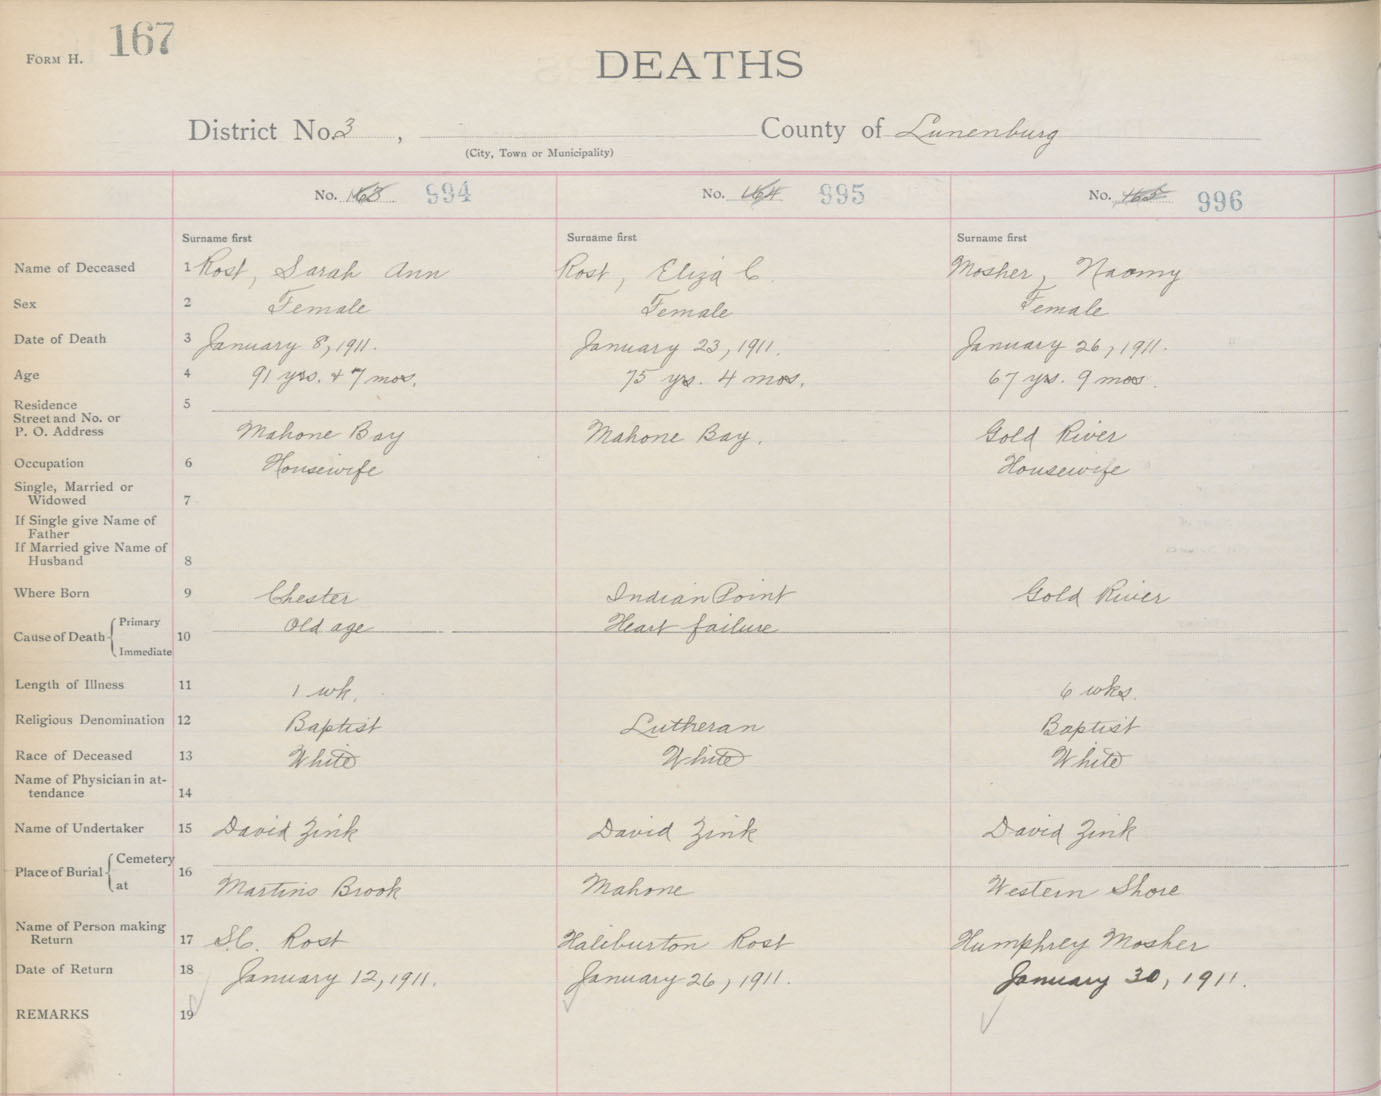 FORM H. 167
DEATHS
District No. 3 , County of Lunenburg
(City, Town or Municipality)
No. 163 994 No. 164 995 No. 165 996
Surname first Surname first Surname first
Name of Deceased 1 Rost, Sarah Ann Rost, Eliza C. Mosher, Naomy
Sex 2 Female Female Female
Date of Death 3 January 8, 1911. January 23, 1911. January 26, 1911.
Age 4 91 yrs. + 7 mos. 75 yrs. 4 mos. 67 yrs. 9 mos.
Residence 5
Street and No. or
P. O. Address Mahone Bay Mahone Bay. Gold River
Occupation 6 Housewife Housewife
Single, Married or
Widowed 7
If Single give Name of
Father
If Married give Name of
Husband 8
Where Born 9 Chester Indian Point Gold River
Cause of Death Primary 10 Old age Heart failure
Immediate
Length of Illness 11 1 wk. 6 wks.
Religious Denomination 12 Baptist Lutheran Baptist
Race of Deceased 13 White White White
Name of Physician in at-
tendance 14
Name of Undertaker 15 David Zink David Zink David Zink
Place of Burial Cemetery 16
at Martins Brook Mahone Western Shore
Name of Person making
Return 17 S.C. Rost Haliburton Rost Humphrey Mosher
Date of Return 18 January 12, 1911. January 26, 1911. January 30, 1911.
REMARKS 19